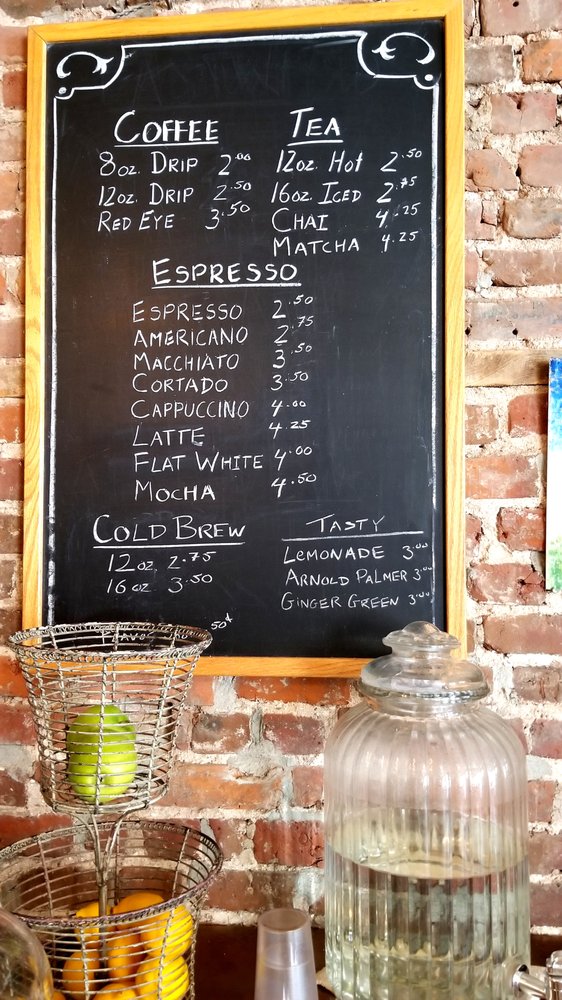 COFFEE
8oz. DRIP 2.00
12oz. DRIP 2.50
RED EYE 3.50
TEA
12oz. HOT 2.50
16oz. ICED 2.75
CHAI 4.25
MATCHA 4.25
ESPRESSO
ESPRESSO 2.50
AMERICANO 2.75
MACCHIATO 3.50
CORTADO 3.50
CAPPUCCINO 4.00
LATTE 4.25
FLAT WHITE 4.00
MOCHA 4.50
COLD BREW
12oz. 2.75
16oz 3.50
TASTY
LEMONADE 3.00
ARNOLD PALMER 3.00
GINGER GREEN 3.00
50¢